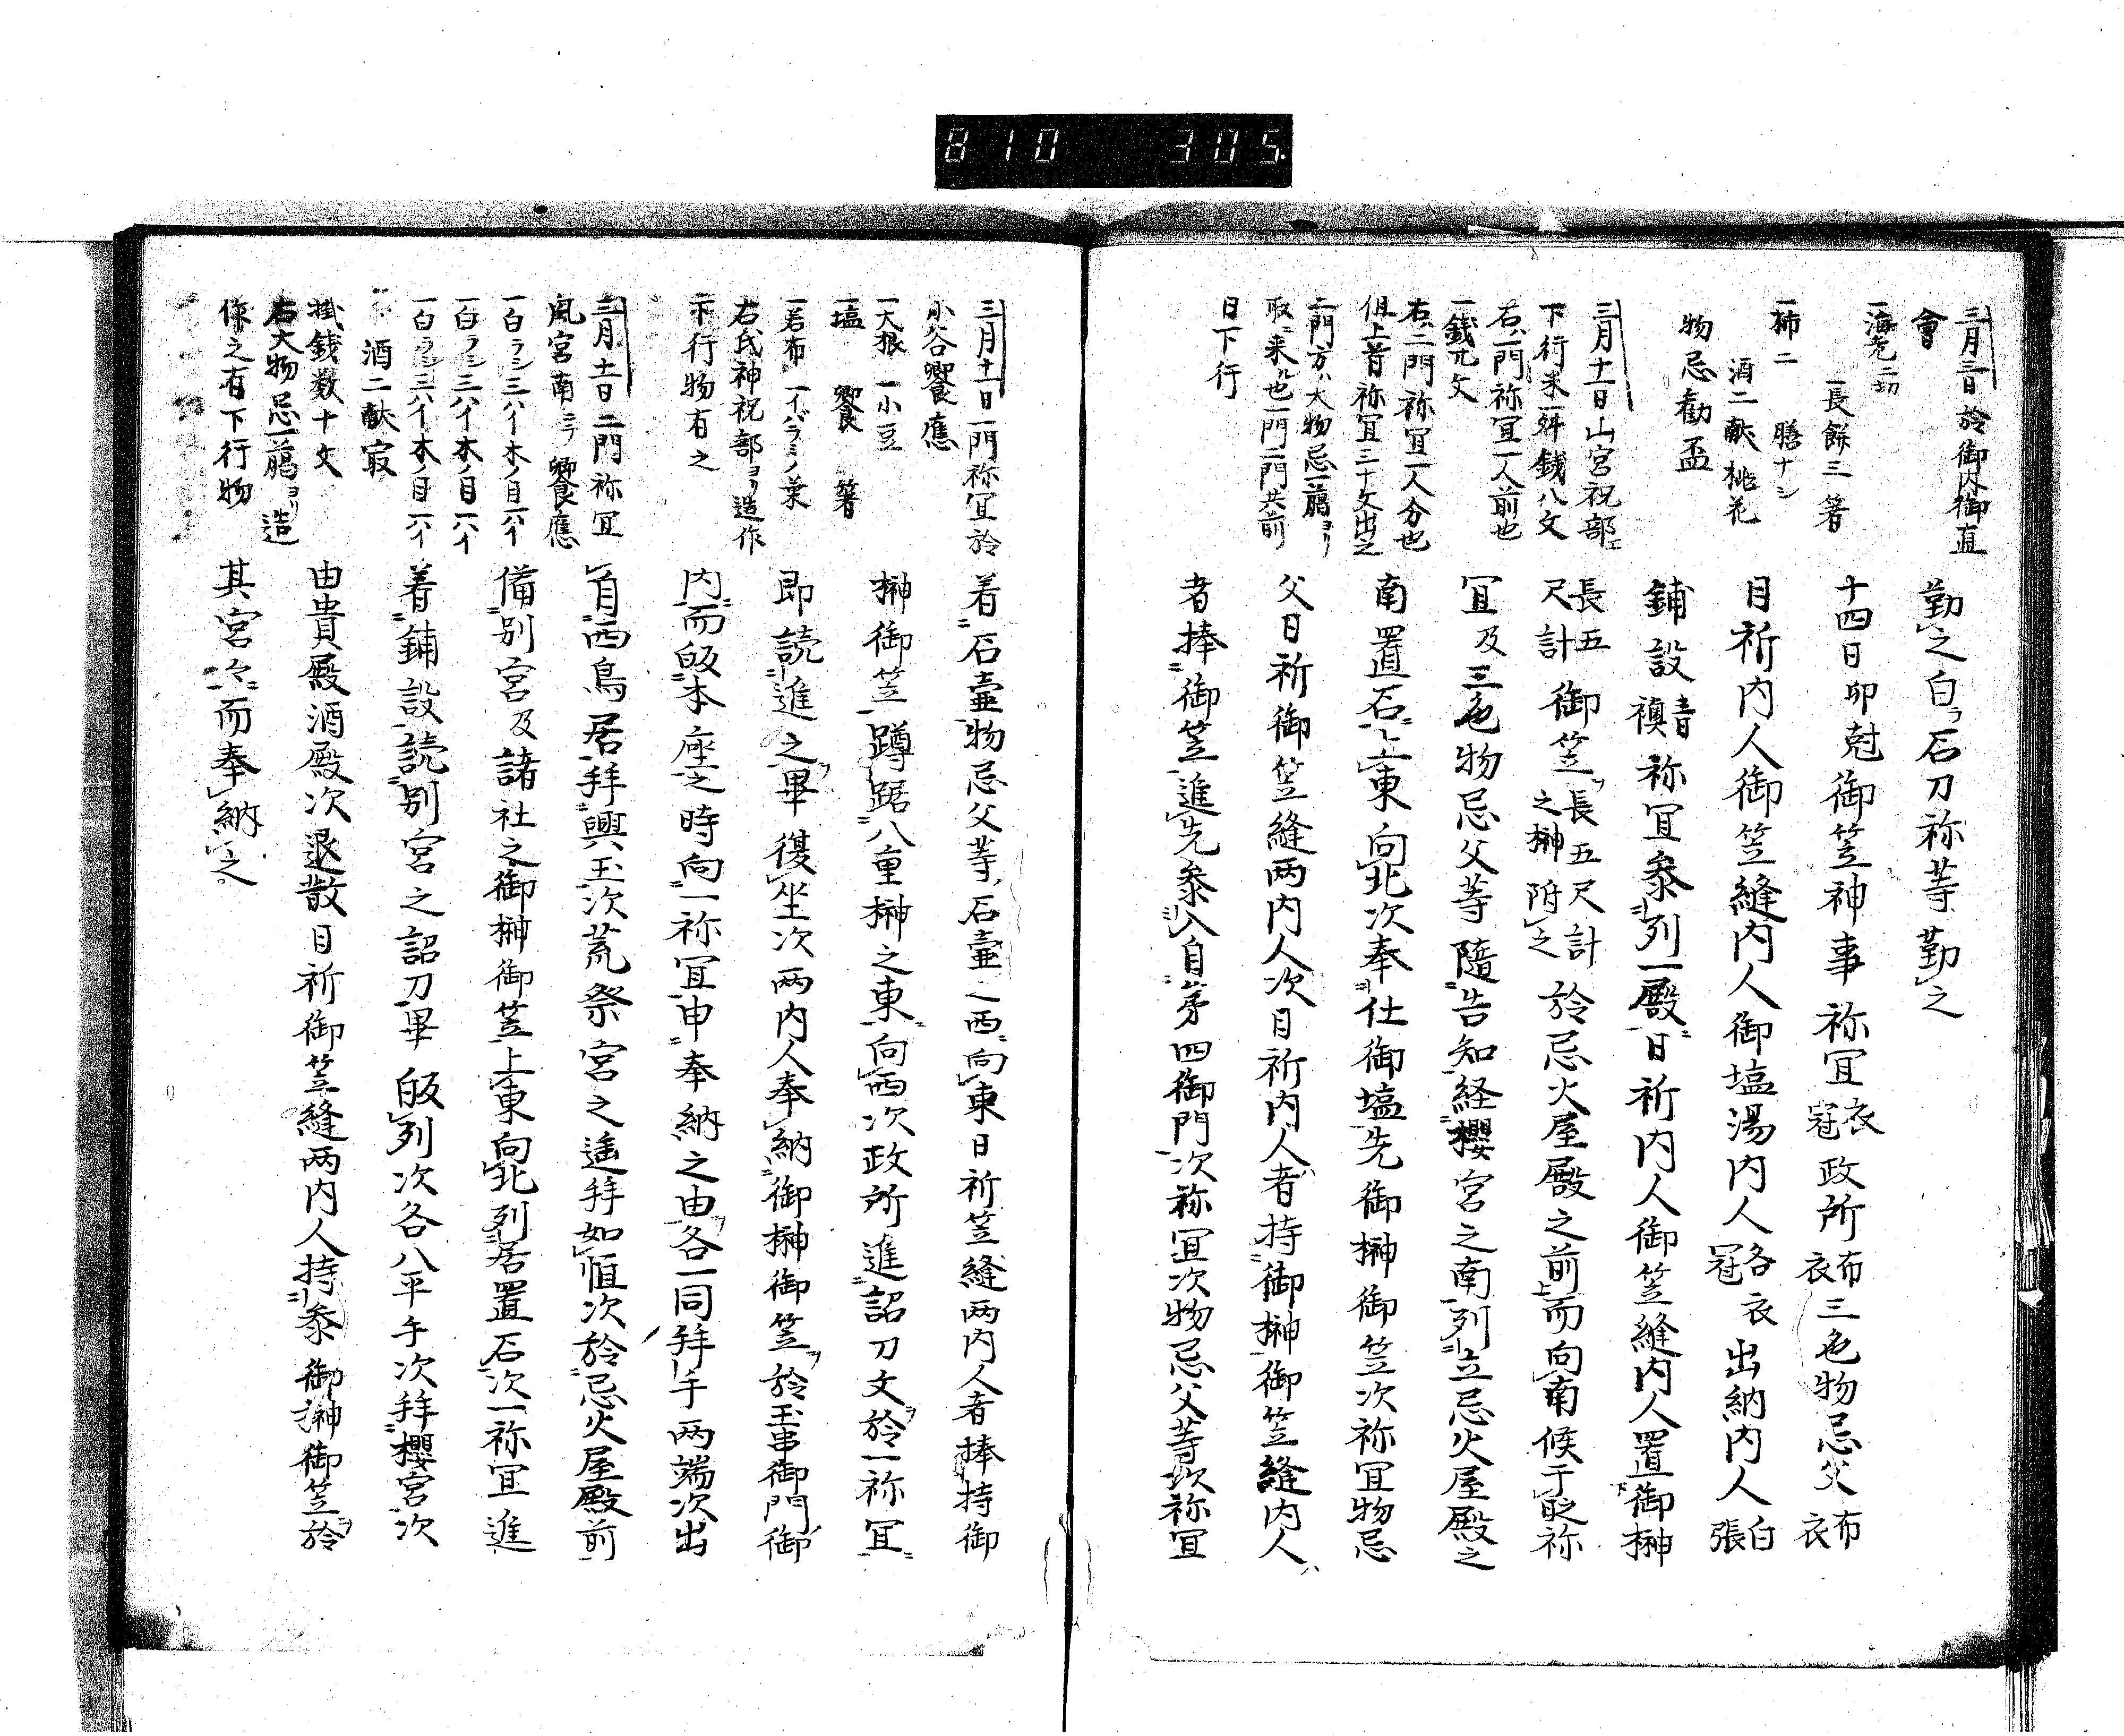 810 305.
三月三日於御内御直
會
一海老二切
一長餅三 箸
一柿二 膳ナシ
酒二献 桃花
物忌勸盃
三月十一日山宮祝部エ
下行米一舛銭八文
右ハ一門祢冝一人前也
一銭九文
右ハ二門祢冝一人分也
但上首祢冝三十文出之
二門方ハ大物忌一﨟ヨリ
取ニ来ル也一門二門共前
日下行
勤之白石刀祢等勤之
十四日卯尅御笠神事 祢冝衣冠政所布衣三色物忌父布衣
日祈内人御笠縫内人御塩湯内人各衣冠出納内人白張
鋪設 祢冝参列一殿日祈内人御笠縫内人置御榊
長五尺計御笠長五尺計之榊附之於忌火屋殿之前而向南候于時祢
冝及三色物忌父等隨告知経櫻宮之南列立忌火屋殿之
南置石上東向北次奉仕御塩先御榊御笠次祢冝物忌
父日祈御笠縫両内人次日祈内人者持御榊御笠縫内人ハ
者捧御笠進先参入自第四御門次祢冝次物忌父等次祢冝
三月十一日一門祢冝於
小谷饗應
一大根 一小豆
一塩 饗 箸
一若布 一イバラミノ葉
右氏神祝部ヨリ造作
下行物有之
三月十一日二門祢冝
風宮南ニテ饗應
一白ラシ三ハイ木ノ目一ハイ
一白ラシ三ハイ木ノ目一ハイ
一白ラシ三ハイ木ノ目一ハイ
酒二献
掛銭数十文
右大物忌一﨟ヨリ造
作之有下行物
着石壷物忌父等石壷之西向東日祈笠縫両内人者捧持御
榊御笠蹲踞八重榊之東向西次政所進詔刀文於一祢冝
即読進之畢復坐次両内人奉納御榊御笠於玉串御門御
内而皈本座之時向一祢冝申奉納之由各一同拜手両端次出
自西鳥居拜興玉次荒祭宮之遥拜如恒次於忌火屋殿前
備別宮及諸社之御榊御笠上東向北列居置石次一祢冝進
着鋪設読別宮之詔刀畢皈列次各八平手次拜櫻宮次
由貴殿酒殿次退散日祈御笠縫両内人持参御榊御笠於
其宮々而奉納之